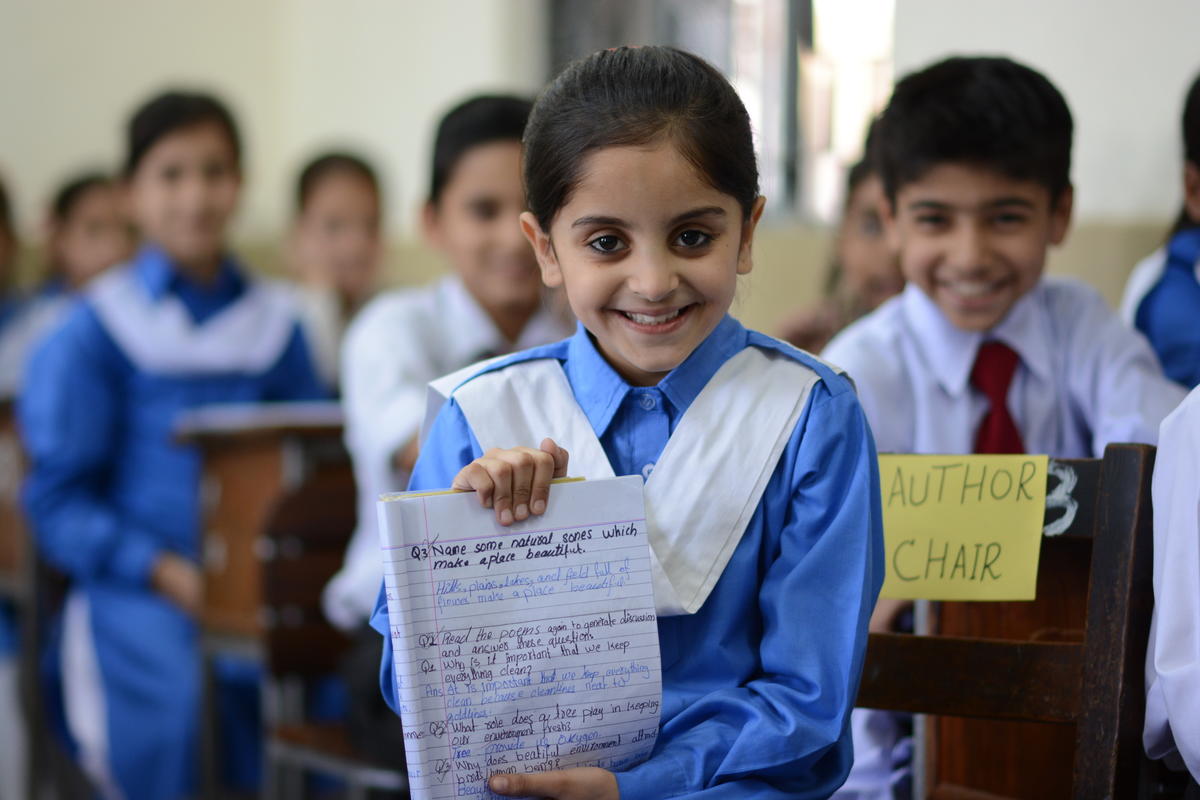 Q3 Name some natural sones which
make a place beautiful.
Hills, plains, lakes, and field full of
flowers make a place beautiful
Q2 Read the poems again to generate discussion
and answer these questions
Q2 Why is it important that we keep
everything clean?
Ans At is important that we keep everything
clean because cleanlines near to
godlines.
Q3 What role does a tree play in keeping
our environment fresh?
Tree provide us oxygen.
Q3 Why does beatiful environment attract
birds/human beings
AUTHOR
CHAIR
3